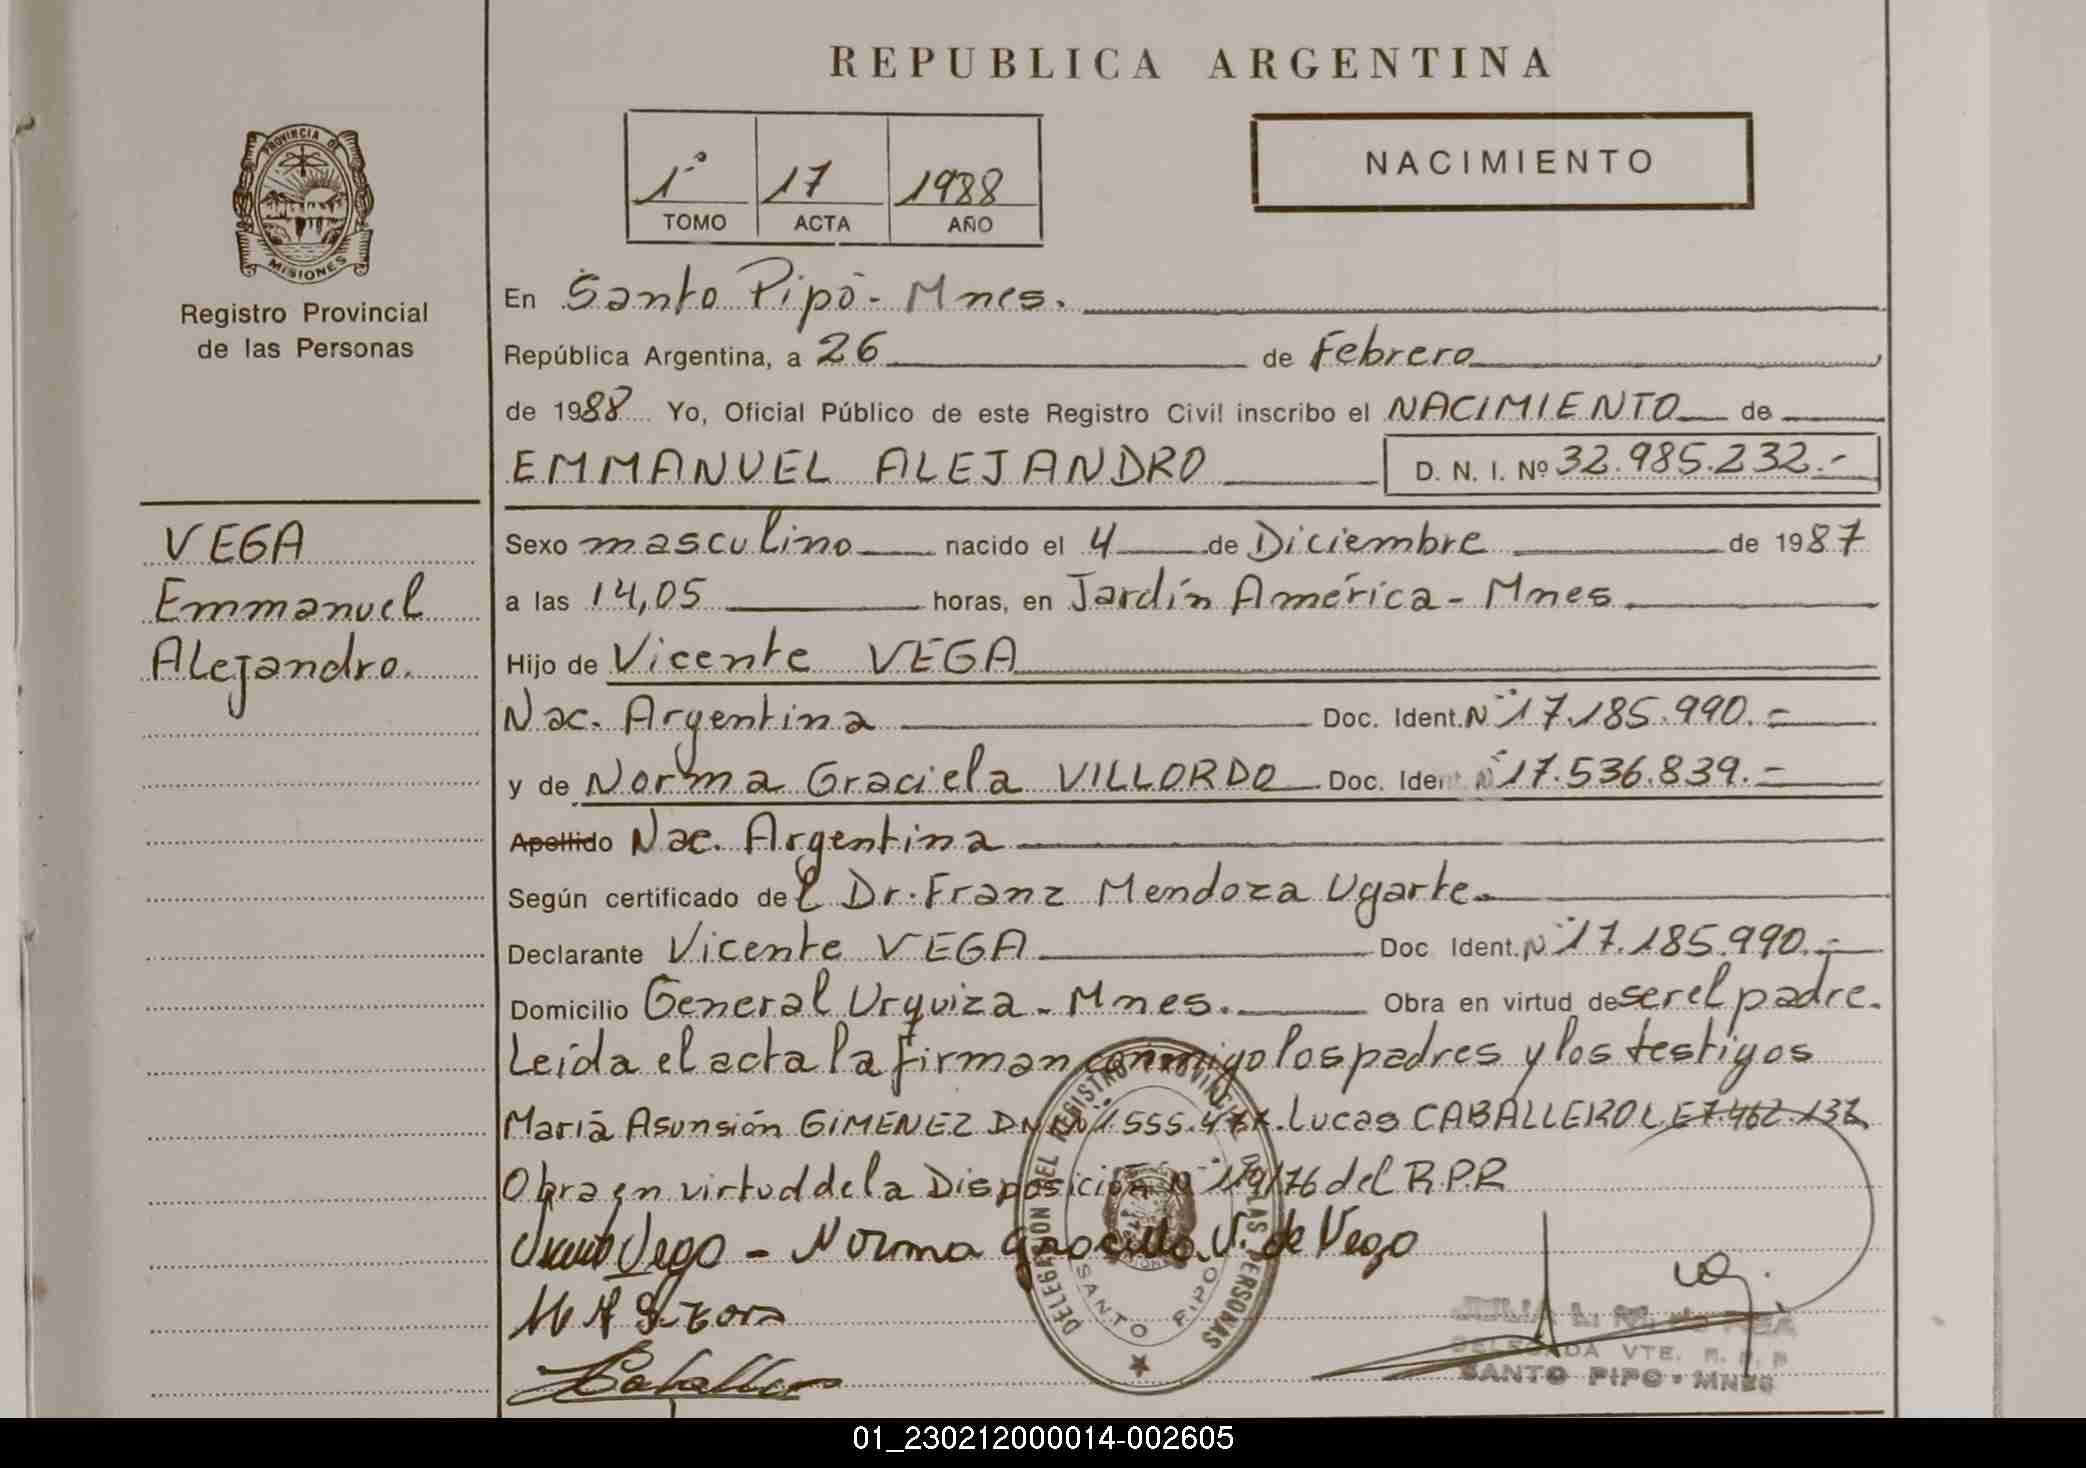 REPUBLICA ARGENTINA
PROVINCIA DE
MISIONES
Registro Provincial
de las Personas
1º 17 1988
TOMO ACTA AÑO
NACIMIENTO
En Santo Pipó - Mnes.
República Argentina, a 26 de Febrero
de 1988 Yo, Oficial Público de este Registro Civil inscribo el NACIMIENTO de
EMMANUEL ALEJANDRO D. N. I. Nº 32.985.232.-
VEGA
Emmanuel
Alejandro.
Sexo masculino nacido el 4 de Diciembre de 1987
a las 14,05 horas, en Jardín América - Mnes
Hijo de Vicente VEGA
Nac. Argentina Doc. Ident. Nº 17.185.990.-
y de Norma Graciela VILLORDO Doc. Ident. Nº 17.536.839.-
Apellido Nac. Argentina
Según certificado del Dr. Franz Mendoza Ugarte.
Declarante Vicente VEGA Doc. Ident. Nº 17.185.990.-
Domicilio General Urquiza - Mnes. Obra en virtud de ser el padre.
Leída el acta la firman conmigo los padres y los testigos
María Asunsión GIMENEZ Lucas CABALLERO LE 7.462.137
Obra en virtud de la Disposición Nº 119/76 del R.P.R
Vega - Norma V. de Vega
DELEGACION DEL REGISTRO PROVINCIAL DE LAS PERSONAS
SANTO PIPO
DELEGADA VTE. R. P. P
SANTO PIPO - MNES
01_230212000014-002605